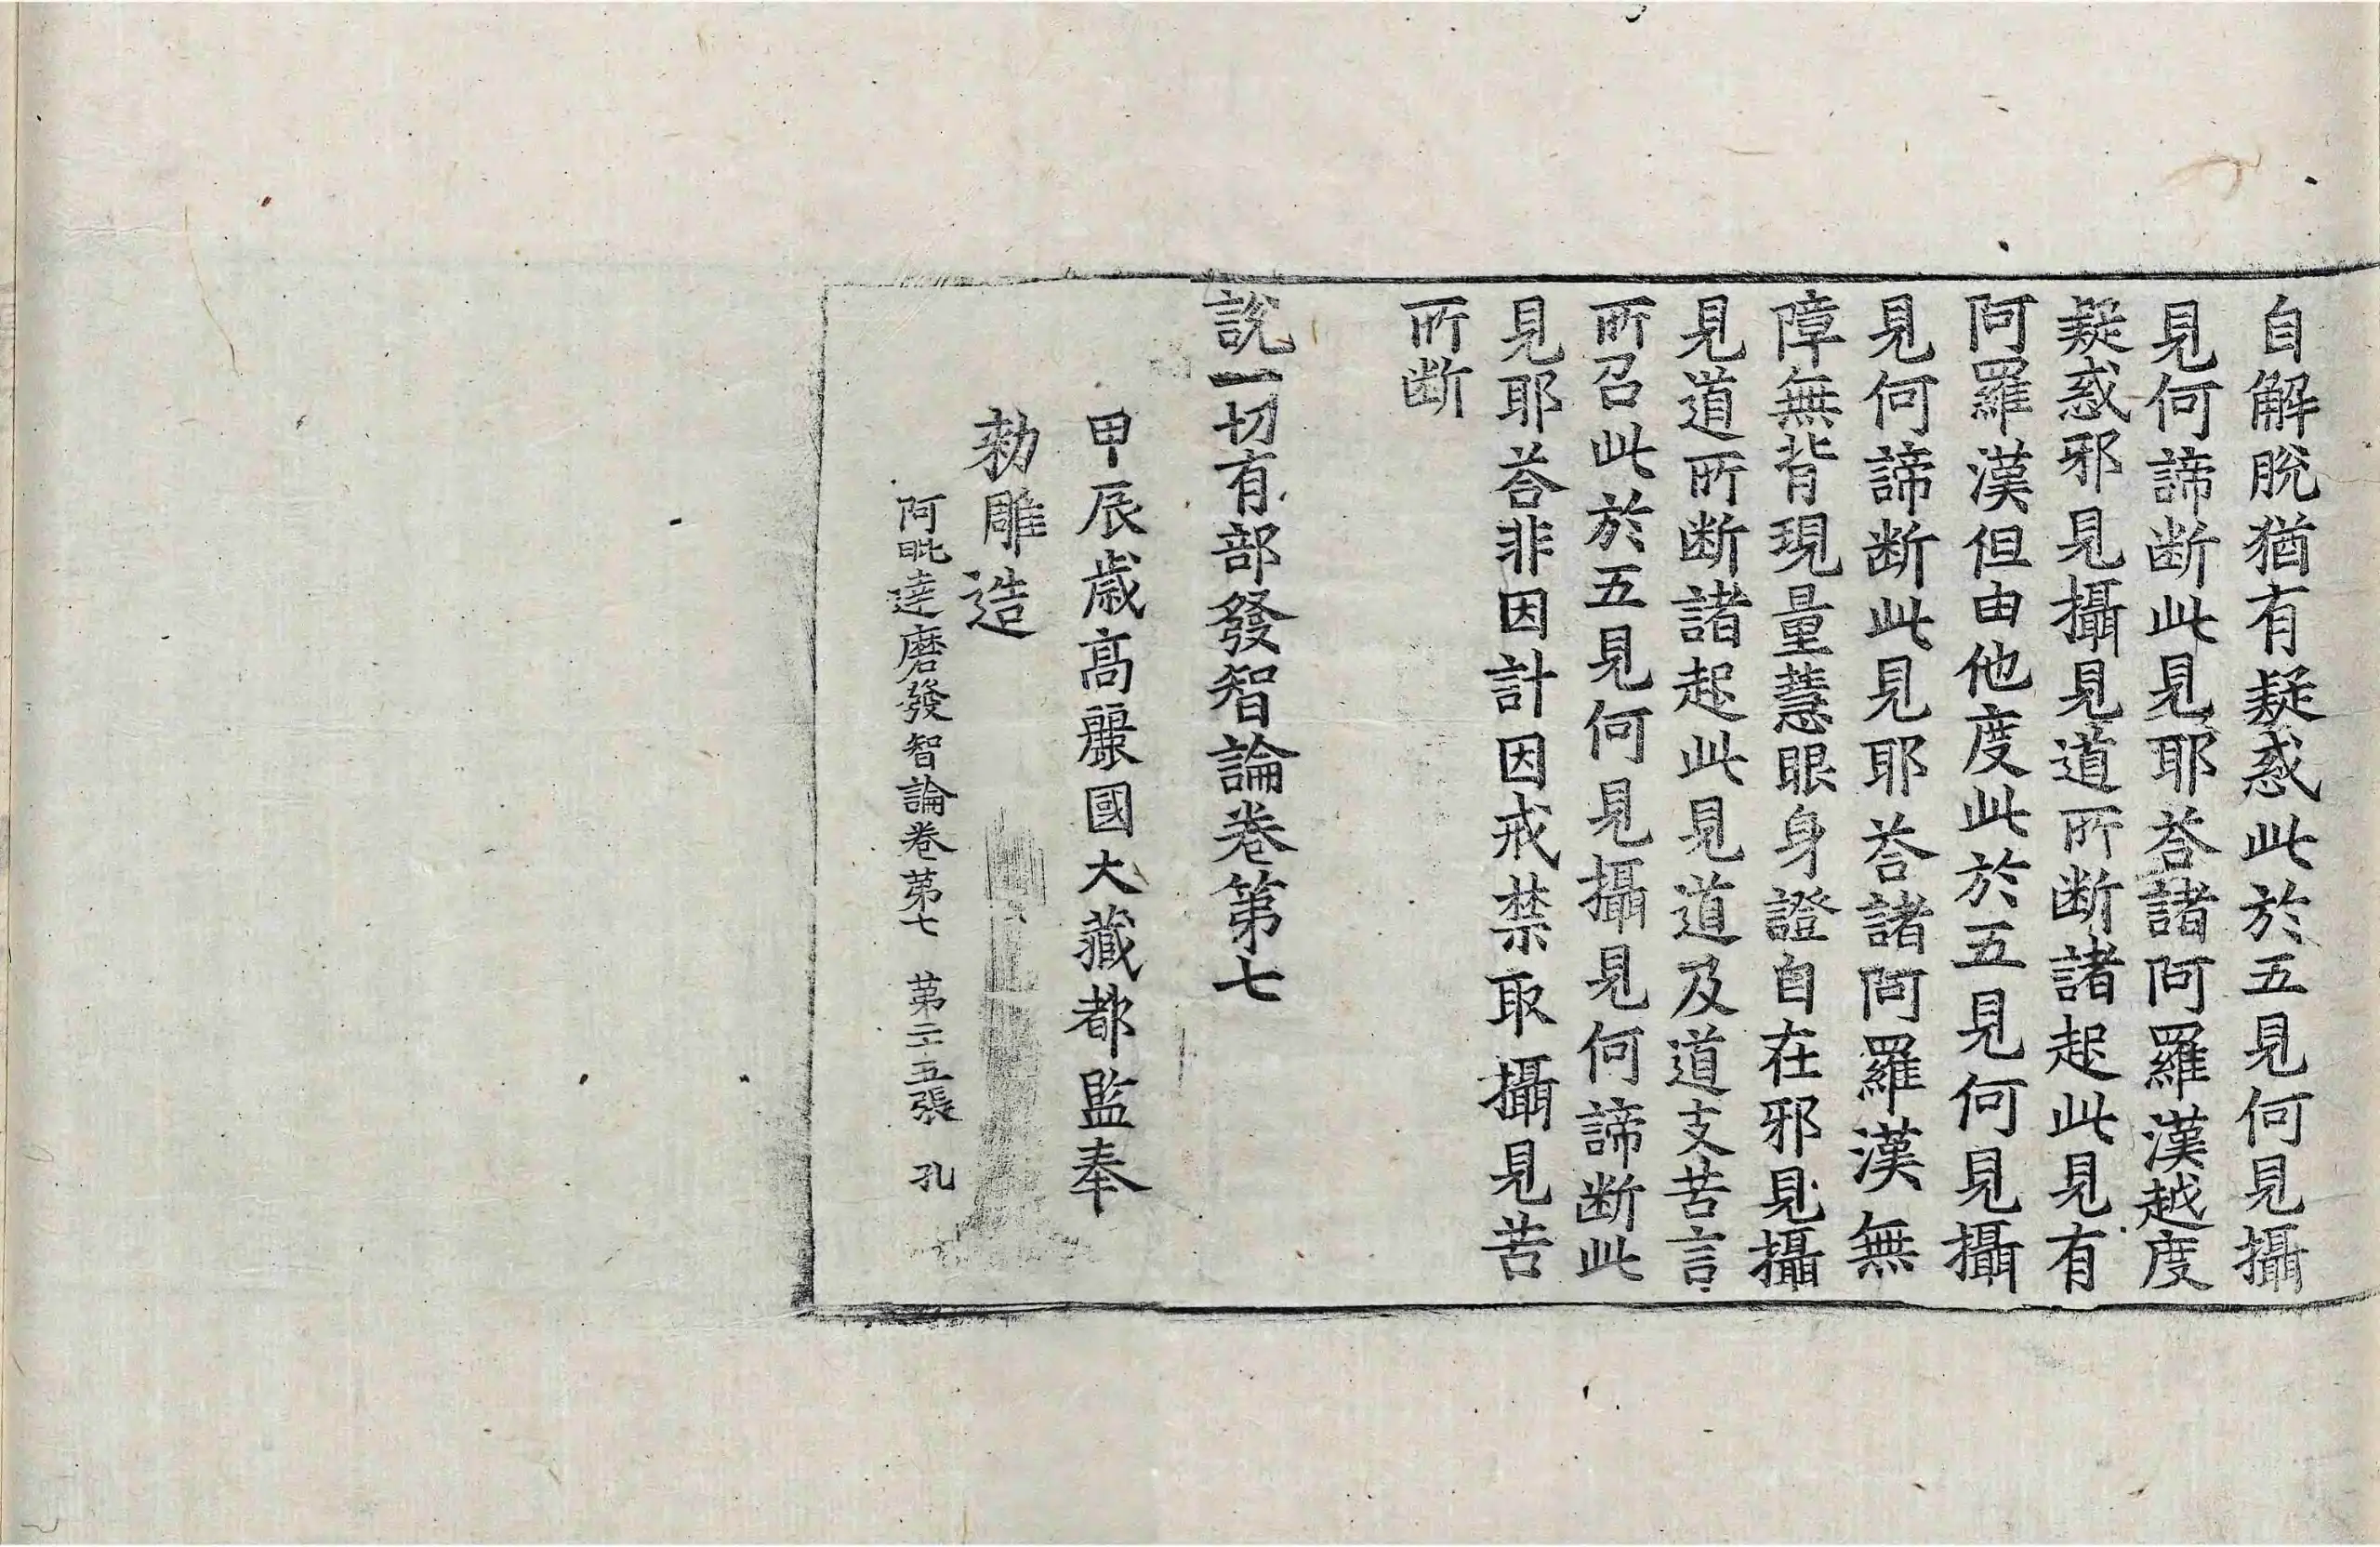 自解脫猶有疑惑此於五見何見攝
見何諦断此見耶荅諸阿羅漢越度
疑惑邪見攝見道所断諸起此見有
阿羅漢但由他度此於五見何見攝
見何諦断此見耶荅諸阿羅漢無無
障無背現量慧眼身證自在邪見攝
見道所断諸起此見道及道支苦言
所召此於五見何見攝見何諦断此
見耶荅非因計因戒禁取攝見苦
所断
說一切有部發智論卷第七
甲辰歲高麗國大藏都監奉
勑雕造
阿毗達磨發智論卷苐七 苐二十五張 孔